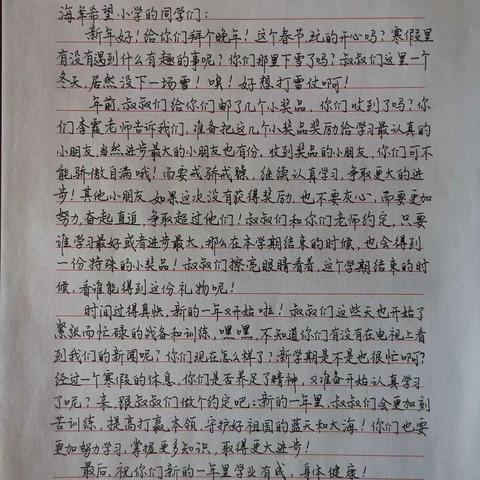 海阜希望小学的同学们：
新年好！给你们拜个晚年！这个春节，玩的开心吗？寒假里
有没有遇到什么有趣的事呢？你们那里下雪了吗？叔叔们这里一个
冬天，居然没下一场雪！唉！好想打雪仗啊！
年前，叔叔们给你们邮了几个小奖品，你们收到了吗？你
们李霞老师告诉我们，准备把这几个小奖品奖励给学习最认真的
小朋友，当然进步最大的小朋友也有份。收到奖品的小朋友，你们可不
能骄傲自满哦！而要戒骄戒躁，继续认真学习，争取更大的进
步！其他小朋友，如果这次没有获得奖励，也不要灰心，而要更加
努力，奋起直追，争取超过他们！叔叔们和你们老师约定，只要
谁学习最好或者进步最大，那么在本学期结束的时候，也会得到
一份特殊的小奖品！叔叔们擦亮眼睛看着，这个学期结束的时
候，看谁能得到这份礼物呢！
时间过得真快，新的一年又开始啦！叔叔们这些天也开始了
紧张而忙碌的战备和训练，嘿嘿，不知道你们有没有在电视上看
到我们的新闻呢？你们现在怎么样了？新学期是不是也很忙啊？
经过一个寒假的休息，你们是否养足了精神，又准备开始认真学习
了呢？来，跟叔叔们做个约定吧：新的一年里，叔叔们会更加刻
苦训练，提高打赢本领，守护好祖国的蓝天和大海！你们也要
更加努力学习，掌握更多知识，取得更大进步！
最后，祝你们新的一年里学业有成，身体健康！